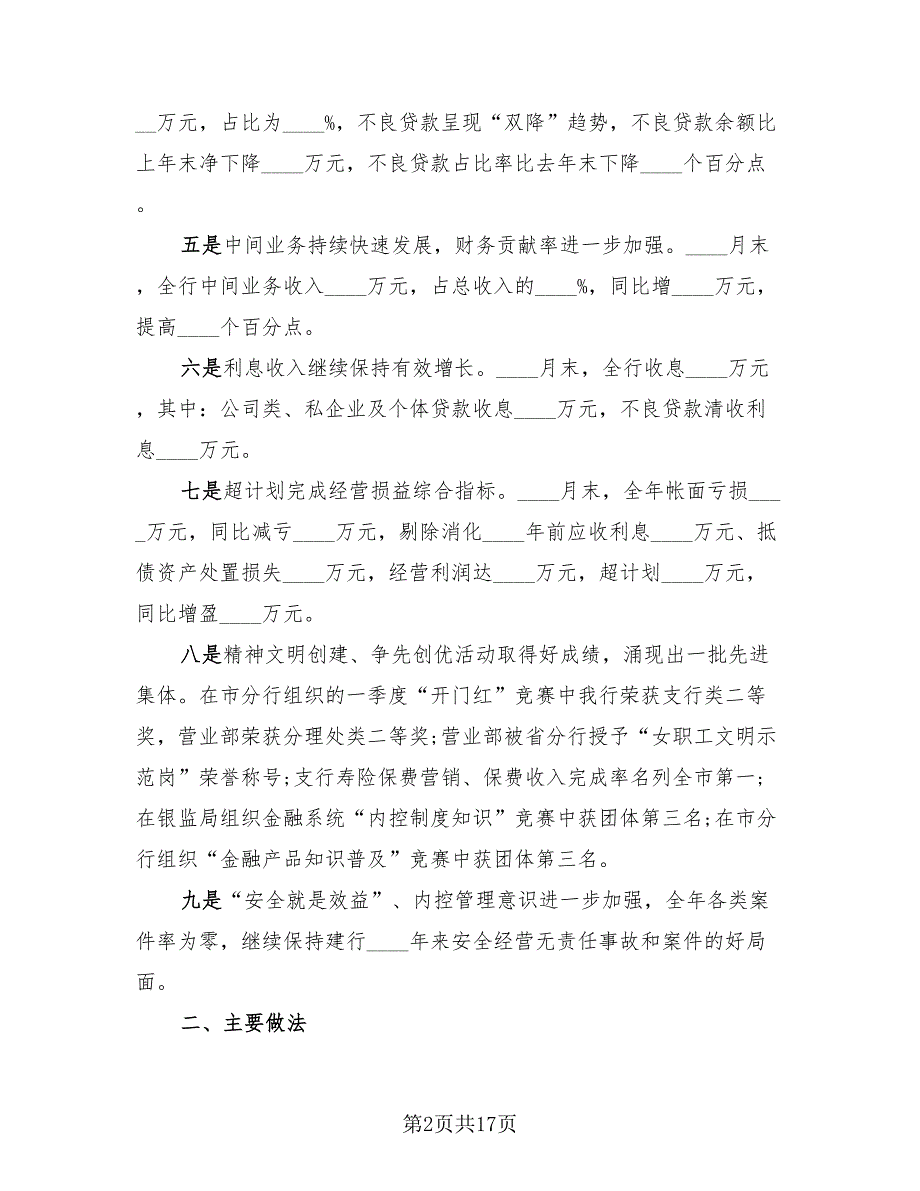 __万元，占比为____%，不良贷款呈现“双降”趋势，不良贷款余额比
上年末净下降____万元，不良贷款占比率比去年末下降____个百分点
。
五是中间业务持续快速发展，财务贡献率进一步加强。____月末
，全行中间业务收入____万元，占总收入的____%，同比增____万元，
提高____个百分点。
六是利息收入继续保持有效增长。____月末，全行收息____万元
，其中：公司类、私企业及个体贷款收息____万元，不良贷款清收利
息____万元。
七是超计划完成经营损益综合指标。____月末，全年帐面亏损___
_万元，同比减亏____万元，剔除消化____年前应收利息____万元、抵
债资产处置损失____万元，经营利润达____万元，超计划____万元，
同比增盈____万元。
八是精神文明创建、争先创优活动取得好成绩，涌现出一批先进
集体。在市分行组织的一季度“开门红”竞赛中我行荣获支行类二等
奖，营业部荣获分理处类二等奖;营业部被省分行授予“女职工文明示
范岗”荣誉称号;支行寿险保费营销、保费收入完成率名列全市第一;
在银监局组织金融系统“内控制度知识”竞赛中获团体第三名;在市分
行组织“金融产品知识普及”竞赛中获团体第三名。
九是“安全就是效益”、内控管理意识进一步加强，全年各类案
件率为零，继续保持建行____年来安全经营无责任事故和案件的好局
面。
二、主要做法
第2页共17页